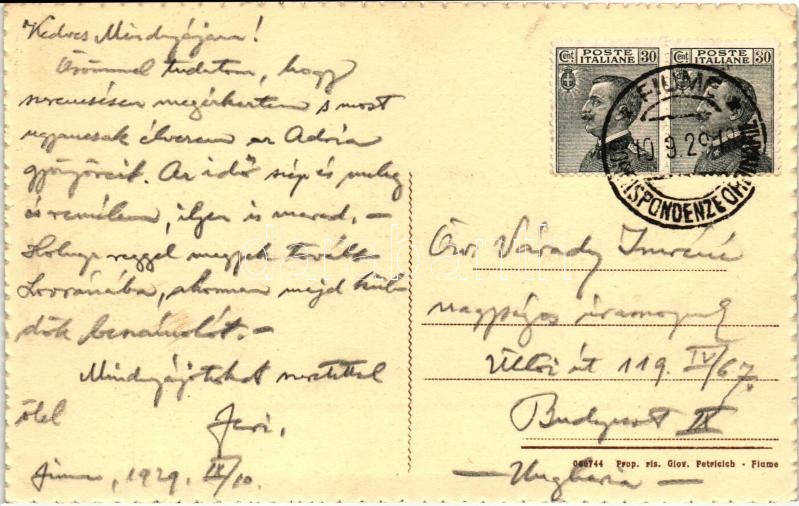 Kedves Mindnyájan!
Örömmel tudatom, hogy
szerencsésen megérkeztem s most
ugyancsak élvezem az Adria
gyönyöreit. Az idő szép és meleg
és remélem, ilyen is marad. –
Holnap reggel megyek tovább
Lovranába, ahonnan majd kül-
dök beszámolót. –
Mindnyájotokat szeretettel
ölel
Jenő.
Fiume, 1929. IX/10.
Cent POSTE ITALIANE 30
Cent POSTE ITALIANE 30
FIUME
10.9.29
CORRISPONDENZE ORDINARIE
Özv. Várady Imréné
nagyságos úrasszonynak
Üllői út 119. IV/67.
Budapest IX
– Ungheria –
066744 Prop. ris. Giov. Petricich - Fiume
darabanth